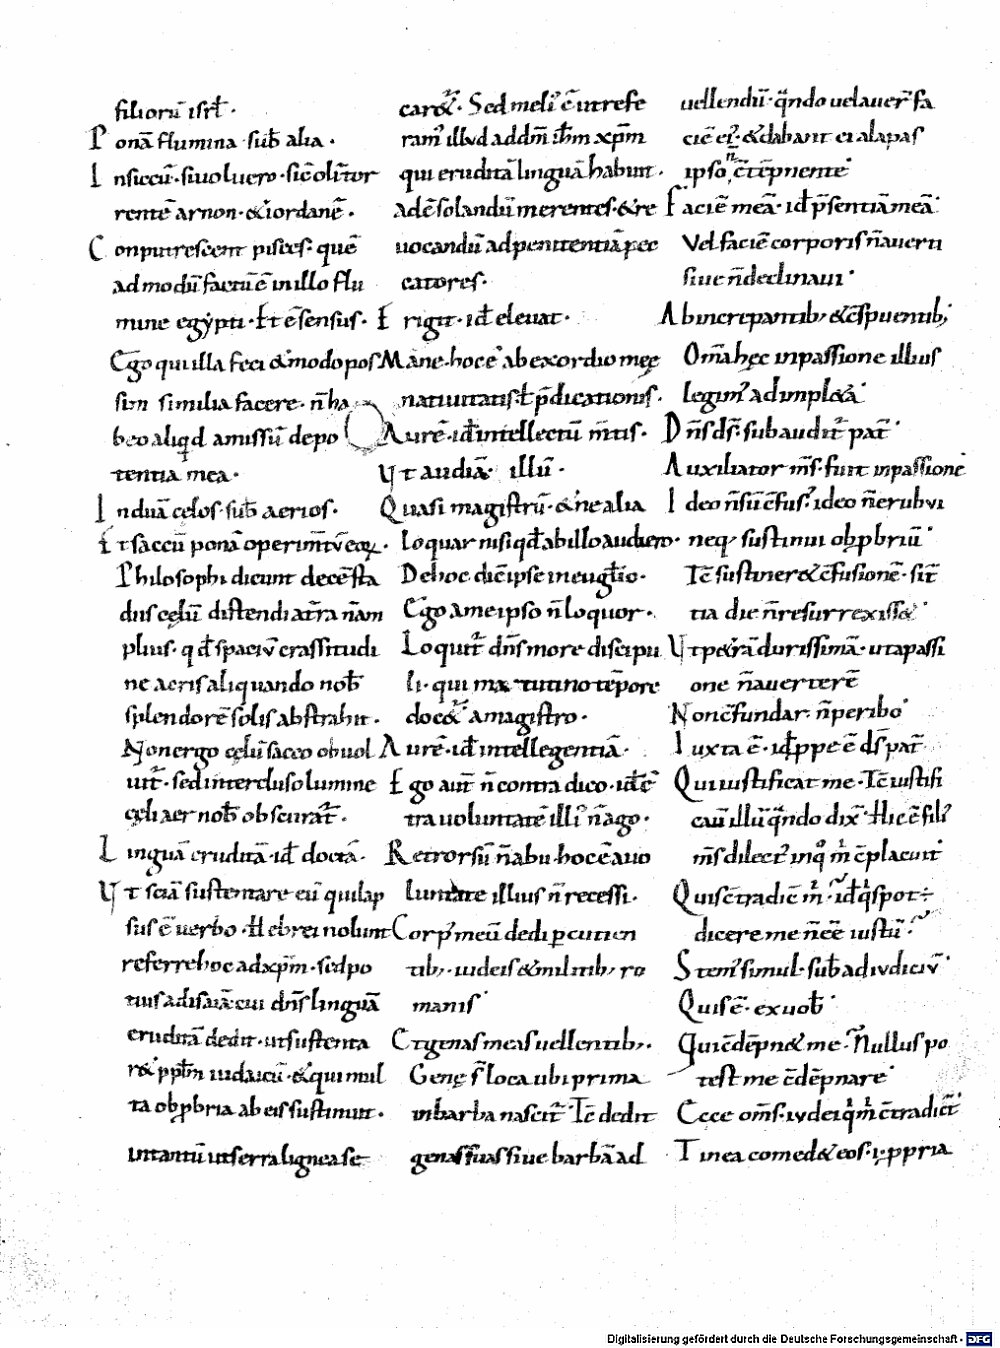 filiorū isrł ·
Ponā flumina · sub̄ alia ·
Insiccū · siuoluero · sic̄ olī tor
rentē arnon · & iordanē ·
Conputrescent pisces · quē
ad modū factū ē in illo flu
mine egypti · Et ē sensus ·
Ego qui illa feci & modo pos
sim similia facere · n̄ ha
beo aliqd amissū depo
tentia mea ·
Induā cęlos · sub̄ aerios ·
Et saccū ponā operim̄tū eoꝝ ·
Philosophi dicunt decē sta
diis cęlū distendi a tr̄a n̄ am
plius · qđ spaciū crassitudi
ne aeris aliquando nob̄
splendorē solis abstrahit ·
Non ergo cęlū sacco obuol
uit · sed intercluso lumine
cęli aer nob̄ obscurat̄ ·
Linguā eruditā · id̄ doctā ·
Ut sciā sustentare eū qui lap
sus ē uerbo · Hebrei nolunt
referre hoc ad xp̄m · sed po
tius ad isaiā cui dn̄s linguā
eruditā dedit · ut sustenta
r& pp̄lm iudaicū · & qui mul
ta obp̄bria ab eis sustinuit ·
intantū ut serra lignea se
car& · Sed meli ē ut refe
ram illud ad dn̄m ih̄m xp̄m
qui eruditā linguā habuit ·
ad ē solandū merentes · & re
uocandū ad penitentiā pec
catores ·
Erigit · id̄ eleuat ·
Mane · hoc ē ab exordio meę
natiuitatis ł p̄dicationis ·
Aurē · id̄ intellectū m̄tis ·
Ut audiā illū ·
Quasi magistrū · & ne alia
loquar nisi qđ ab illo audiero ·
De hoc dic̄ ipse in euglio ·
Ego a me ipso n̄ loquor ·
Loquit̄ dn̄s more discipu
li · qui matutino tēpore
doc& a magistro ·
Aurē · id̄ intellegentiā ·
Ego aut̄ n̄ contradico · id̄ ē
tra uoluntatē illi n̄ ago ·
Retrorsū n̄ abii · hoc ē a uo
luntate illius n̄ recessi ·
Corp meū dedi pcutien
tib; · iudeis & militib; ro
manis
Et genas meas uellentib; ·
Genę s̄ loca ubi prima
in barba nascit̄ · Tē dedit
genas suas siue barbā ad
uellendū · qn̄do uelauer̄ fa
ciē ei · & dabant ei alapas
ipso c̄tēpnente
Faciē meā · id̄ p̄sentiā meā
Vel faciē corporis n̄ auerti
siue n̄ declinaui
Ab increpantib; & c̄spuentib;
Om̄a hęc in passione illius
legim adimpl&a
Dn̄s d̄s · subaudit̄ pat̄
Auxiliator m̄s · fuit in passione
Ideo n̄ sū c̄fus ideo n̄ erubui
neq; sustinui obp̄briū
Tē sustiner& c̄fusionē · si t̄
tia die n̄ resurrexiss&
Ut p&rā durissimā · ut a passi
one n̄ auerterē
Non c̄fundar · n̄ peribo
Iuxta ē · id̄ ppe ē d̄s pat̄
Qui iustificat me · Tē iustifi
cauit illū qn̄do dix̄ · Hic ē fili
m̄s dilect in q m c̄placuit
Quis c̄tradic̄ m · id̄ qs pot÷
dicere me n̄ ēē iustū
Stem simul · sub̄ ad iudiciū
Quis ē · ex uob̄
Qui c̄dēpn& me · Nullus po
test me c̄dēpnare
Ecce om̄s · iudei q m c̄tradic̄t
Tinea comed& eos · i · ppria
Digitalisierung gefördert durch die Deutsche Forschungsgemeinschaft - DFG